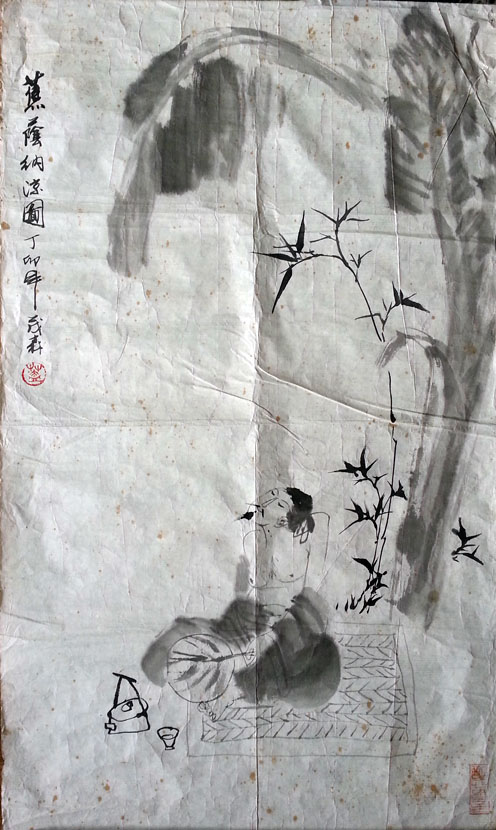 蕉蔭納涼圖丁卯年茂森